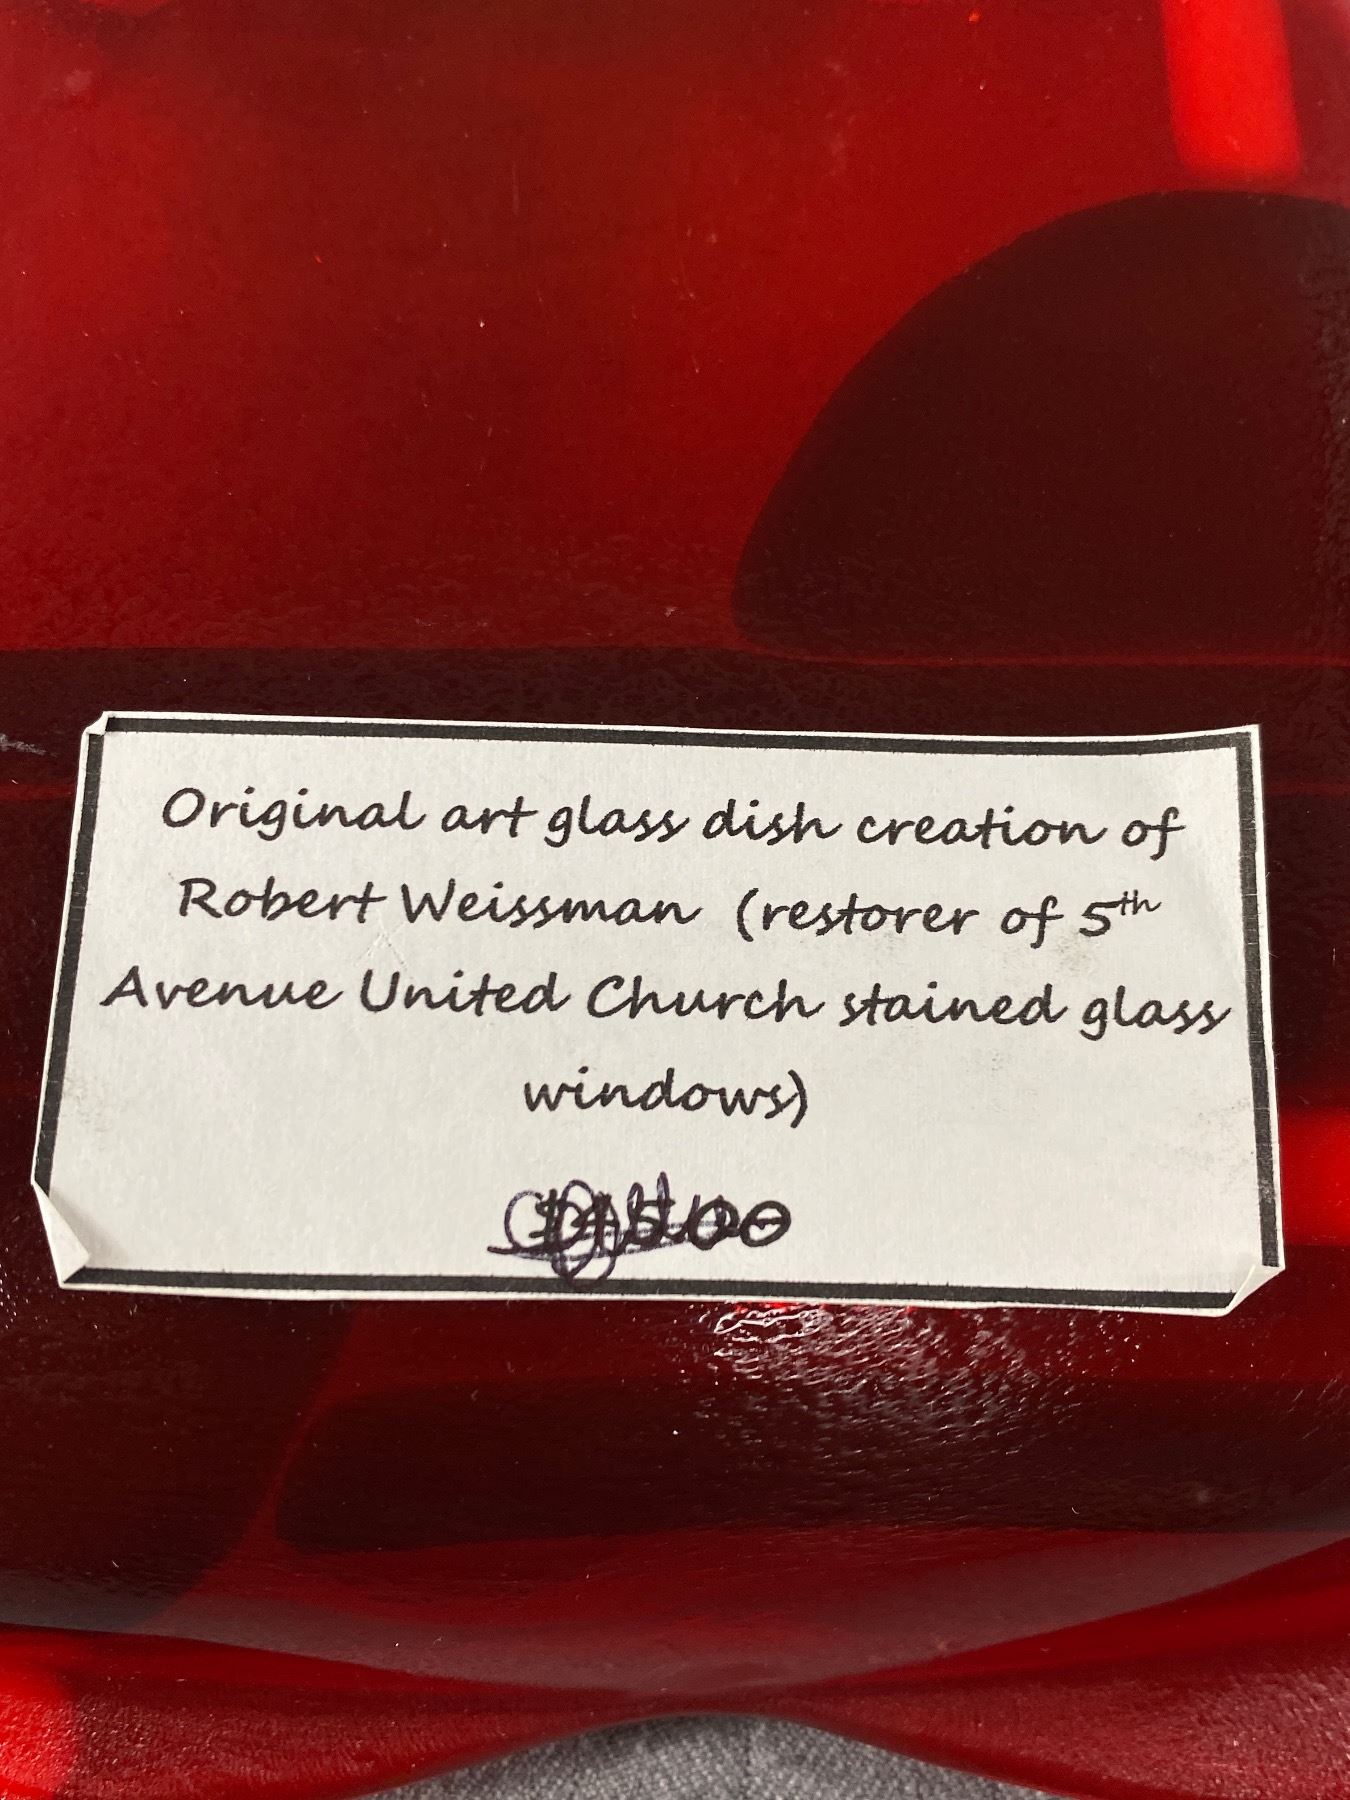 Original art glass dish creation of
Robert Weissman (restorer of 5th
Avenue United Church stained glass
windows)